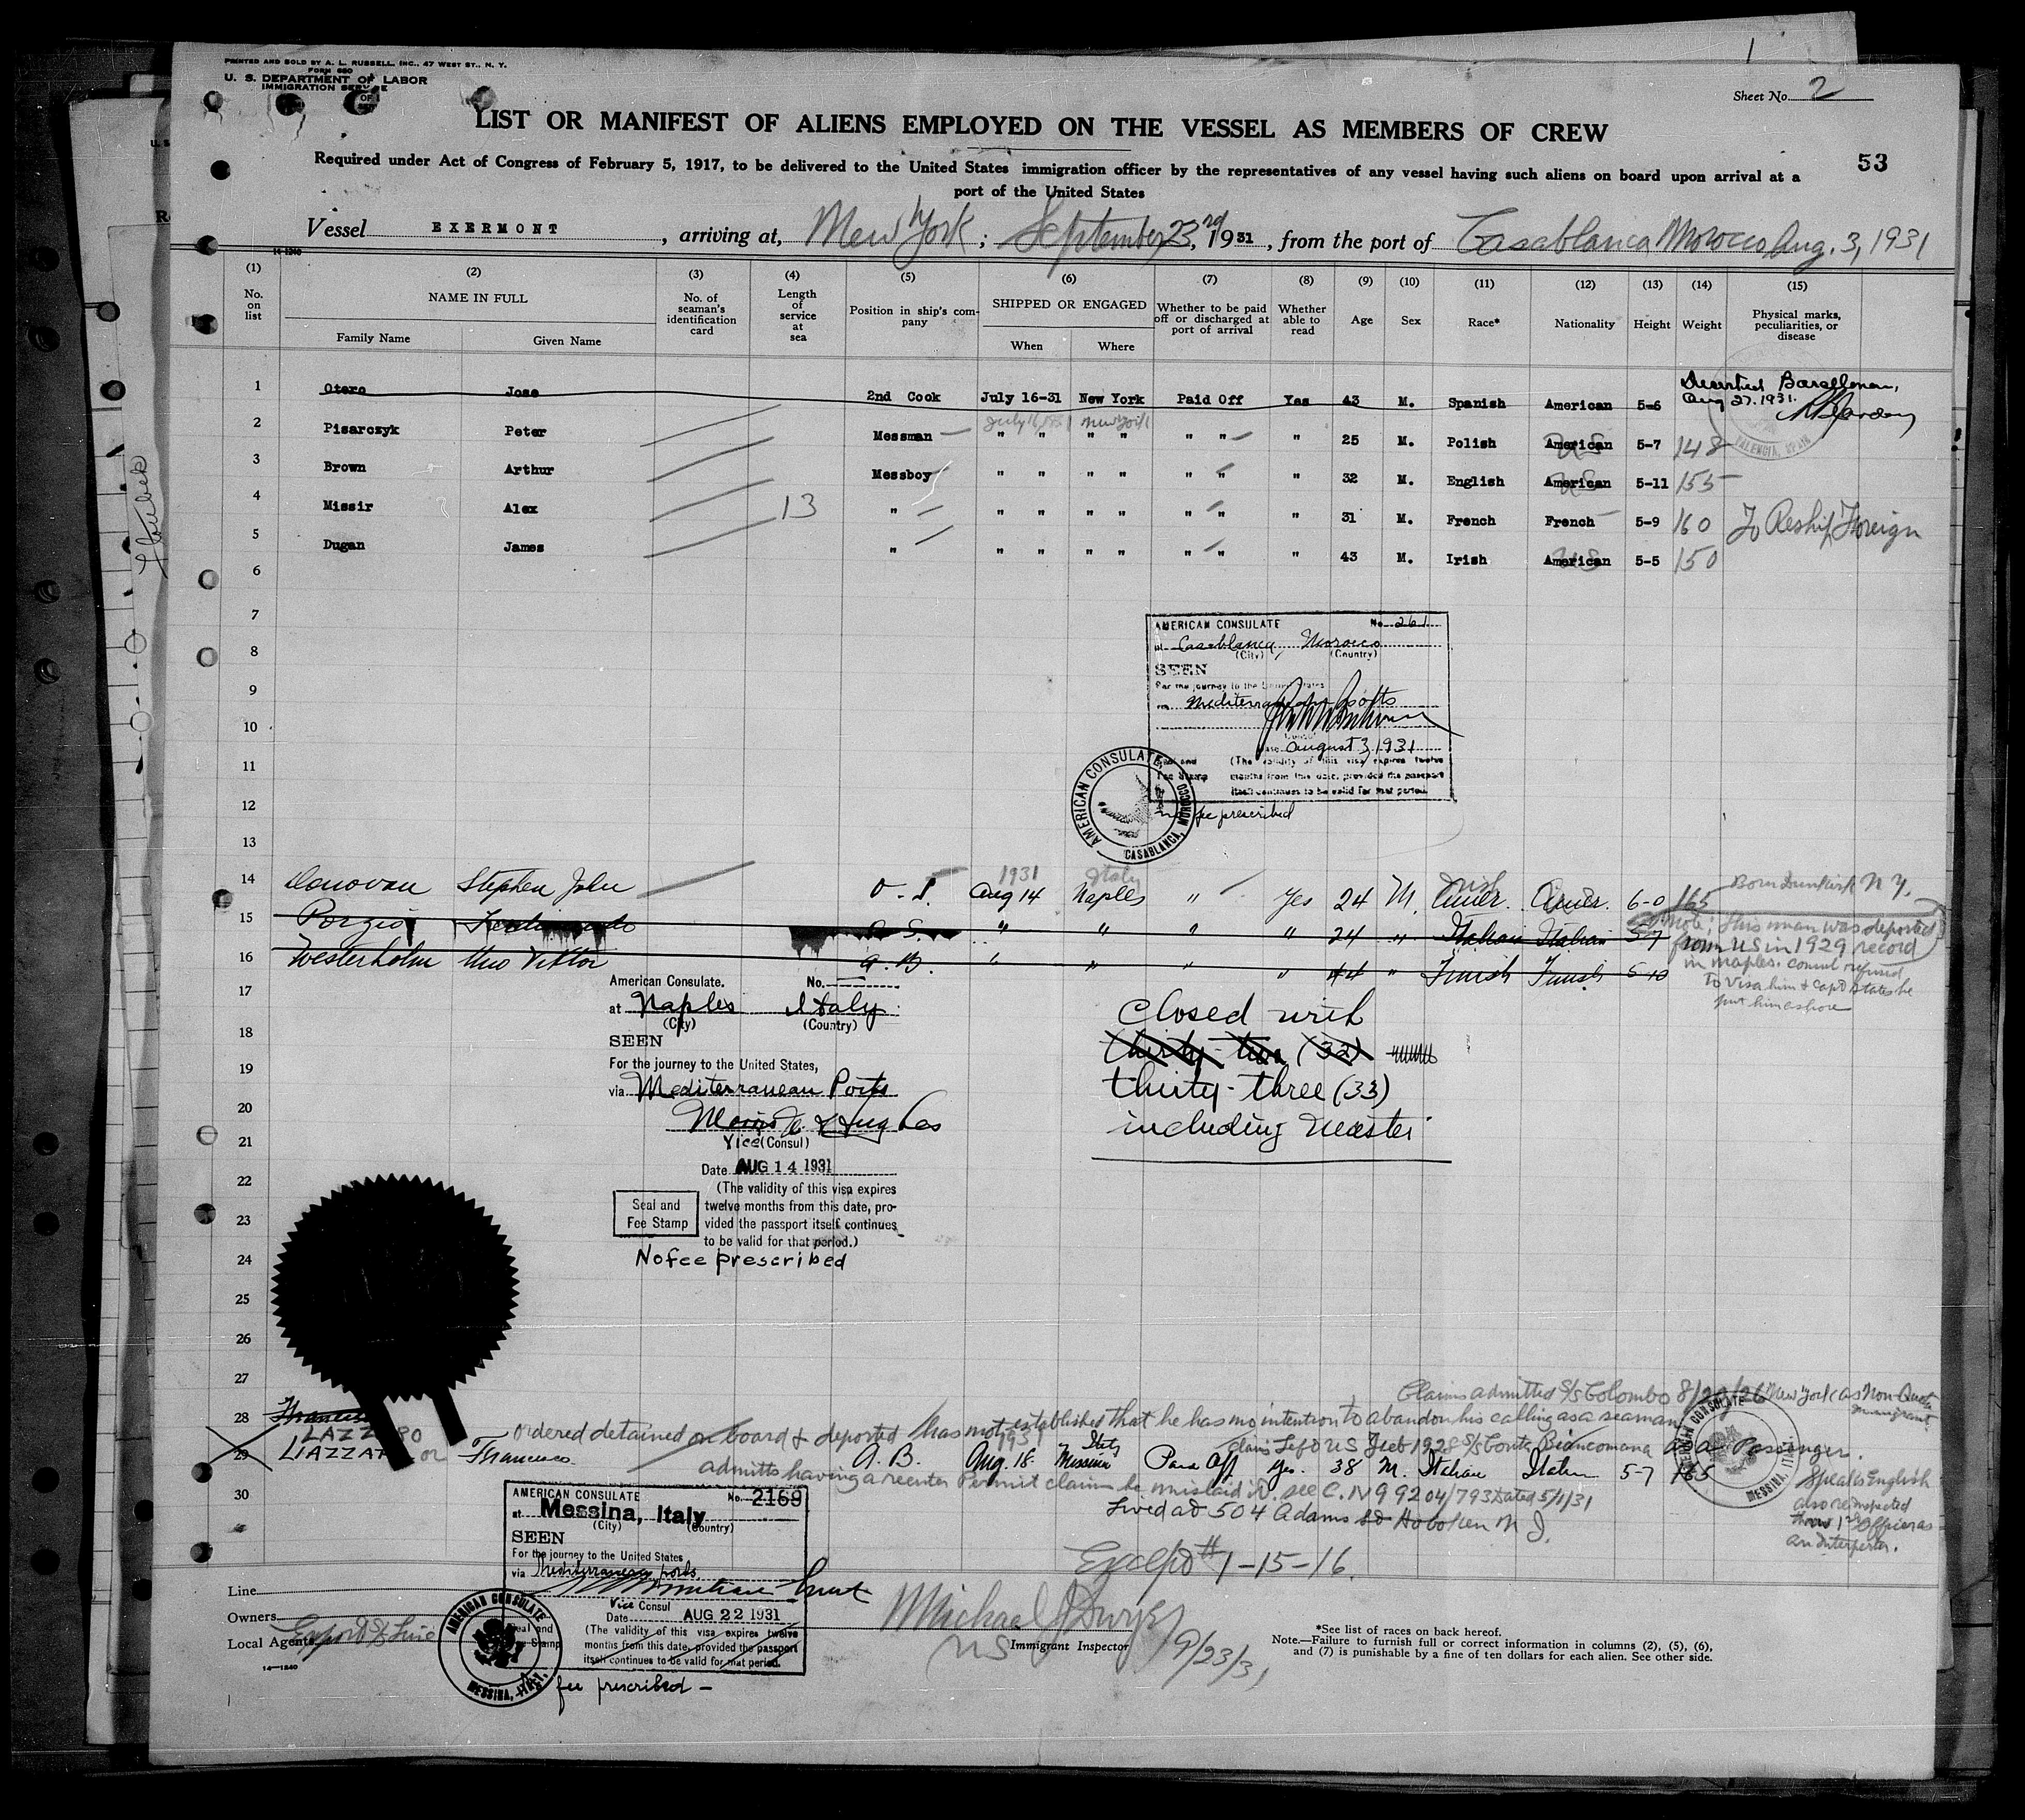 PRINTED AND SOLD BY A. L. RUSSELL, INC., 47 WEST ST., N. Y.
FORM 680
U. S. DEPARTMENT OF LABOR
IMMIGRATION SERVICE
1
Sheet No. 2
LIST OR MANIFEST OF ALIENS EMPLOYED ON THE VESSEL AS MEMBERS OF CREW
53
Required under Act of Congress of February 5, 1917, to be delivered to the United States immigration officer by the representatives of any vessel having such aliens on board upon arrival at a
port of the United States
Vessel EXERMONT, arriving at, New York; September 23, rd 1931, from the port of Casablanca Morocco Aug. 3, 1931
14-1240
(1) (2) (3) (4) (5) (6) (7) (8) (9) (10) (11) (12) (13) (14) (15)
No. on list
NAME IN FULL
Family Name Given Name
No. of seaman's identification card
Length of service at sea
Position in ship's company
SHIPPED OR ENGAGED
When Where
Whether to be paid off or discharged at port of arrival
Whether able to read
Age
Sex
Race*
Nationality
Height
Weight
Physical marks, peculiarities, or disease
1 Otero Jose 2nd Cook July 16-31 New York Paid Off Yes 43 M. Spanish American 5-6 Deserted Barcelona,
Aug 27. 1931.
VALENCIA, SPAIN
July 16, 1931 New York
2 Pisarczyk Peter Messman " " " " " " " 25 M. Polish American US 5-7 148
3 Brown Arthur Messboy " " " " " " " 32 M. English American US 5-11 155
4 Missir Alex 13 " " " " " " " " 31 M. French French 5-9 160 To Reship Foreign
5 Dugan James " " " " " " " " 43 M. Irish American US 5-5 150
6
7
8
9
10
11
12
13
AMERICAN CONSULATE No. 261
at Casablanca, Morocco
(City) (Country)
SEEN
For the journey to the United States
via Mediterranean Ports
Date August 3, 1931
Seal and Fee Stamp
(The validity of this visa expires twelve
months from this date, provided the passport
itself continues to be valid for that period.
no fee prescribed
AMERICAN CONSULATE, CASABLANCA, MOROCCO
1931 Italy Irish
14 Donovan Stephen John O. S. Aug 14 Naples " Yes 24 M. Amer. Amer. 6-0 165 Born Dunkirk N Y.
15 Porzio A. S. " " " " 24 " Italian Italian 5-7
Note; this man was deported
from US in 1929 record
in Naples. Consul refused
to visa him & Capt states he
put him ashore
16 Westerholm Uno Viktor A. B. " " " " 44 " Finish Finish 5-10
17
18
19
20
21
22
23
24
25
26
27
American Consulate. No.
at Naples Italy
(City) (Country)
SEEN
For the journey to the United States,
via Mediterranean Ports
Vice (Consul)
Date AUG 14 1931
(The validity of this visa expires
twelve months from this date, pro-
vided the passport itself continues
to be valid for that period.)
Seal and
Fee Stamp
No fee prescribed
Closed with
thirty-two (32)
thirty-three (33)
including Master
Claims admitted S/S Colombo 8/29/26 New York as Non-Quota
immigrant
28 ordered detained on board & deported has not established that he has no intention to abandon his calling as a seaman
LAZZARO
1931 Italy claims left US Feb 1928 S/S Conte Biancomana as a Passenger.
29 LIAZZARO or Francesco A. B. Aug. 18. Messina Paid Off yes. 38 M. Italian Italian 5-7 165
admitts having a reenter Permit claims he mislaid it. see C. IV 99204/793 Dated 5/1/31
Lived at 504 Adams St Hoboken N J.
Speaks English
also reinspected
thru 1st Officer as
an interpreter.
30
AMERICAN CONSULATE, MESSINA, ITALY
AMERICAN CONSULATE No. 2169
at Messina, Italy
(City) (Country)
SEEN
For the journey to the United States
via Mediterranean ports
Vice Consul
Date AUG 22 1931
(The validity of this visa expires twelve
months from this date, provided the passport
itself continues to be valid for that period.
Seal and Fee Stamp
fee prescribed -
AMERICAN CONSULATE MESSINA, ITALY
Except # 1-15-16.
Line
Owners
Local Agents Export SS Line
14-1240
Michael J Dwyer
US Immigrant Inspector 9/23/31
*See list of races on back hereof.
Note.—Failure to furnish full or correct information in columns (2), (5), (6),
and (7) is punishable by a fine of ten dollars for each alien. See other side.